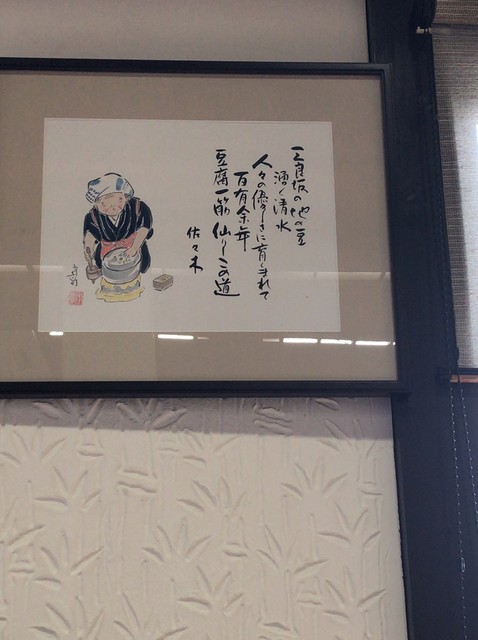 三良坂の地の豆
湧く清水
人々の優しさに育くまれて
百有余年
豆腐一筋 この道
佐々木